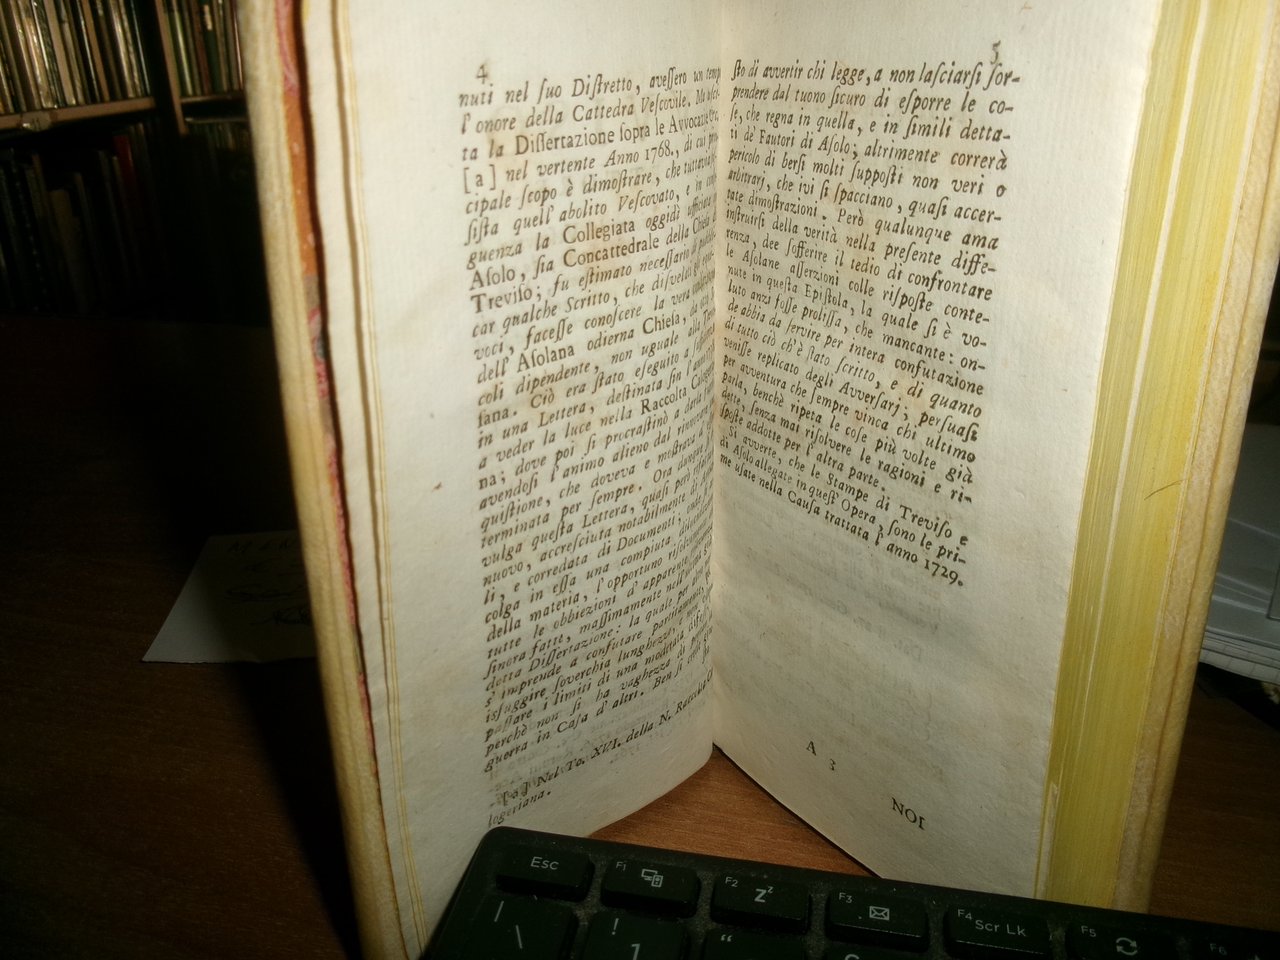 4
nuti nel ſuo Diſtretto, aveſſero un temp
l'onore della Cattedra Veſcovile. Ma uſci-
ta la Diſſertazione ſopra le Avvocazie &c.
[a] nel vertente Anno 1768., di cui prin-
cipale ſcopo è dimoſtrare, che tuttavia ſuſ-
ſiſta quell' abolito Veſcovato, e in conſe-
guenza la Collegiata oggidì ufficiata
Aſolo, ſia Concattedrale della Chieſa di
Treviſo; fu eſtimato neceſſario di pubbli-
car qualche Scritto, che diſvelati gli equi-
voci, faceſſe conoſcere la vera condizione
dell' Aſolana odierna Chieſa, da
coli dipendente, non uguale alla Trevi-
ſana. Ciò era ſtato eſeguito a ſufficienza
in una Lettera, deſtinata ſin l'anno
a veder la luce nella Raccolta Calogeria-
na; dove poi ſi procraſtinò a darla
avendoſi l'animo alieno dal rinnovare
quiſtione, che doveva e moſtrava
terminata per ſempre. Ora dunque ſi
vulga queſta Lettera, quaſi però
nuovo, accreſciuta notabilmente di
li, e corredata di Documenti; onde
colga in eſſa una compiuta
della materia, l'opportuno
tutte le obbiezioni d' apparenza
ſinora fatte, maſſimamente nell'
dotta Diſſertazione: la quale per altro
s' imprende a confutare partitamente,
isfuggire ſoverchia lunghezza,
paſſare i limiti di una modeſta difeſa,
perchè non ſi ha vaghezza di portar
guerra in Caſa d' altri. Ben ſi crede
[a] Nel To. XVI. della N. Raccolta Ca-
logeriana.
5
ſto di avvertir chi legge, a non laſciarſi ſor-
prendere dal tuono ſicuro di eſporre le co-
ſe, che regna in quella, e in ſimili detta-
ti de' Fautori di Aſolo; altrimente correrà
pericolo di berſi molti ſuppoſti non veri o
arbitrarj, che ivi ſi ſpacciano, quaſi accer-
tate dimoſtrazioni. Però qualunque ama
inſtruirſi della verità nella preſente diffe-
renza, dee ſofferire il tedio di confrontare
le Aſolane aſſerzioni colle riſpoſte conte-
nute in queſta Epiſtola, la quale ſi è vo-
luto anzi foſſe proliſſa, che mancante: on-
de abbia da ſervire per intera confutazione
di tutto ciò ch' è ſtato ſcritto, e di quanto
veniſſe replicato degli Avverſarj; perſuaſi
per avventura che ſempre vinca chi ultimo
parla, benchè ripeta le coſe più volte già
dette, ſenza mai riſolvere le ragioni e ri-
ſpoſte addotte per l'altra parte.
Si avverte, che le Stampe di Treviſo e
di Aſolo allegate in queſt' Opera, ſono le pri-
me uſate nella Cauſa trattata l'anno 1729.
A 3
NOI
Esc
F1
F2
Zz
F3
F4
Scr Lk
F5
F6
|
\
!
1
"